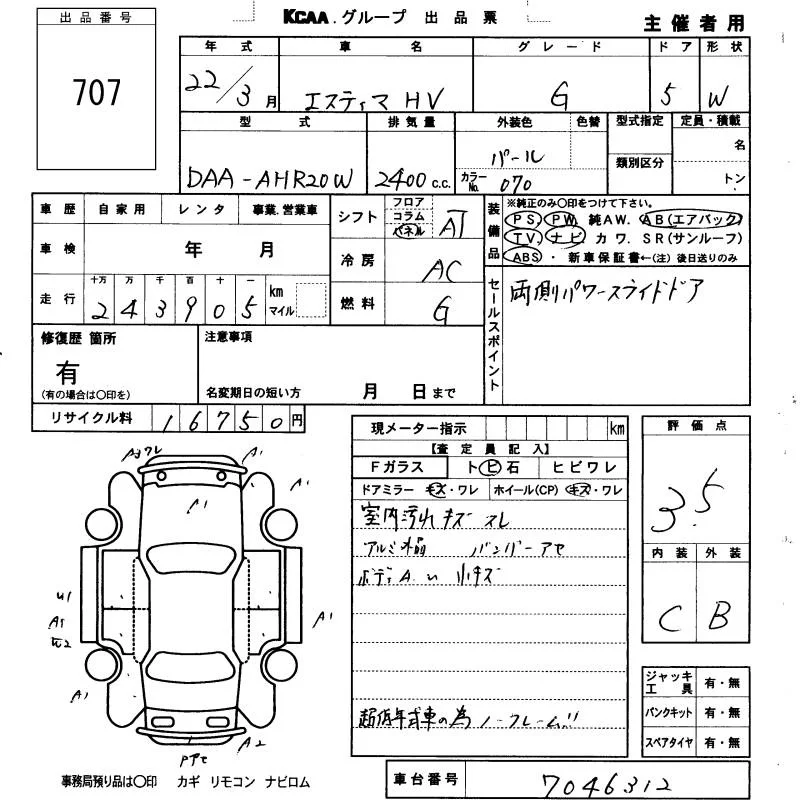 KCAA.グループ 出品票
主催者用
出品番号
707
年式 車名 グレード ドア 形状
22/3月 エスティマ HV G 5 W
型式 排気量 外装色 色替 型式指定 定員・積載
DAA-AHR20W 2400 c.c. パール 名
カラーNo. 070 類別区分 トン
車歴 自家用 レンタ 事業.営業車
シフト フロア コラム パネル AT
装備品 ※純正のみ○印をつけて下さい。
PS PW 純AW. AB(エアバック)
TV ナビ カワ. SR(サンルーフ)
ABS ・ 新車保証書←(注) 後日送りのみ
車検 年 月
冷房 AC
走行 十万 万 千 百 十 一
243905 km マイル
燃料 G
セールスポイント 両側パワースライドドア
修復歴 箇所
有
(有の場合は○印を)
注意事項
名変期日の短い方 月 日まで
リサイクル料 16750円
現メーター指示 km
【査定員記入】
Fガラス ト ビ 石 ヒビワレ
ドアミラー キズ・ワレ ホイール(CP) キズ・ワレ
室内汚れ キズ スレ
バンパーアセ
ボディA.U 小キズ
超低年式車の為 ノークレーム!!
評価点
3.5
内装 外装
C B
A3ワレ A1
A1 A1 A1
U1
A1
A1
A1
A2
ジャッキ工具 有・無
パンクキット 有・無
スペアタイヤ 有・無
事務局預り品は○印 カギ リモコン ナビロム
車台番号 7046312